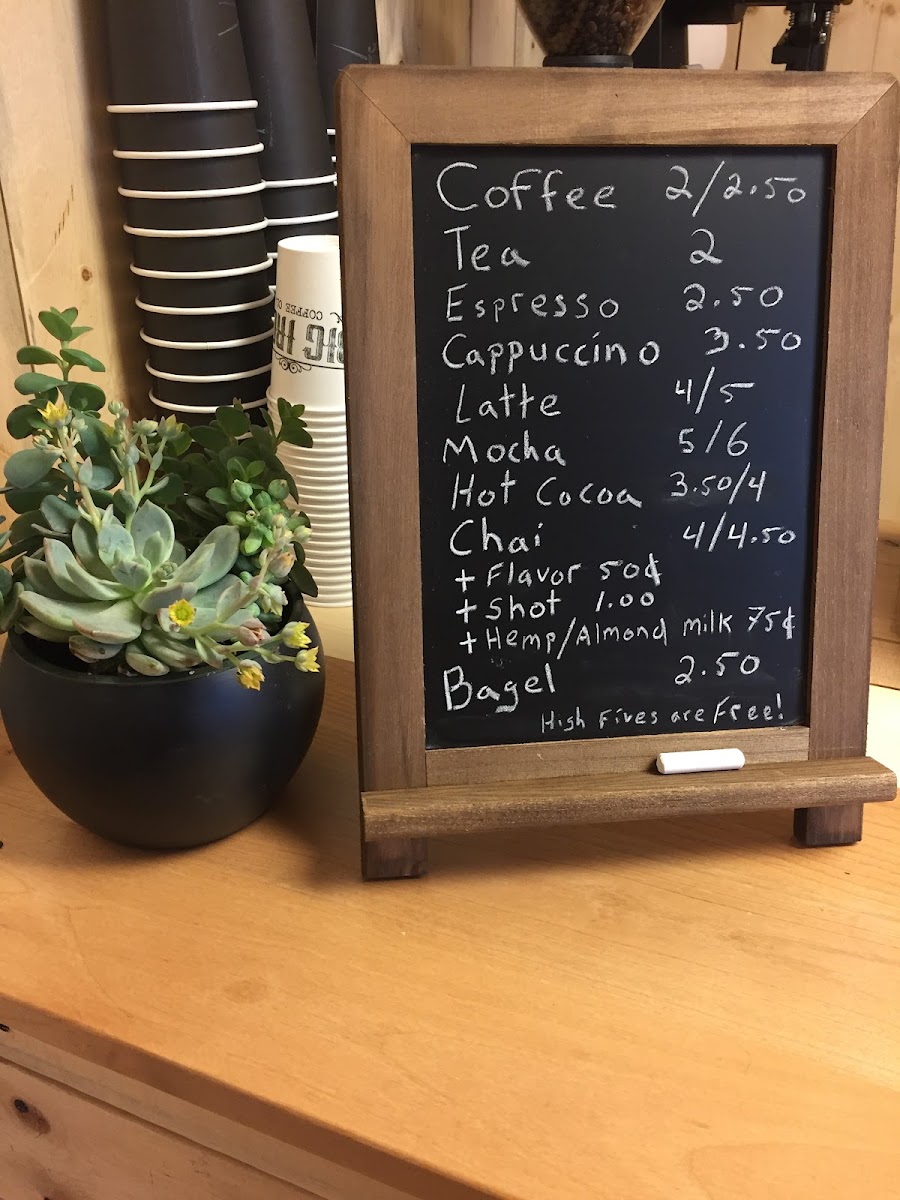 Coffee 2/2.50
Tea 2
Espresso 2.50
Cappuccino 3.50
Latte 4/5
Mocha 5/6
Hot Cocoa 3.50/4
Chai 4/4.50
+ Flavor 50¢
+ Shot 1.00
+ Hemp/Almond milk 75¢
Bagel 2.50
High Fives are Free!
COFFEE
BIG